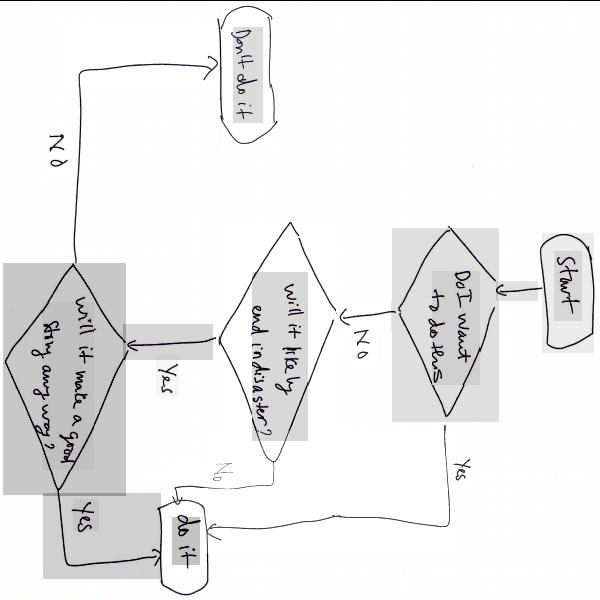 Start
Do I want
to do this
Yes
No
will it likely
end in disaster?
No
Yes
will it make a good
story any way?
Yes
No
do it
Don't do it